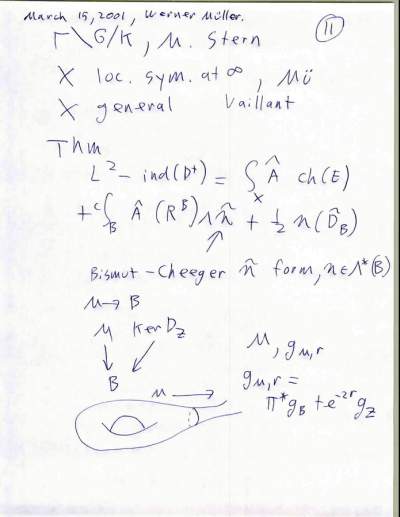 March 15, 2001, Werner Müller.
11
Γ\G/K, M. Stern
X loc. sym. at ∞, Mü
X general Vaillant
Thm
L²-ind(D⁺) = ∫_X Â ch(E)
+ c∫_B Â(R^B)∧η̂ + ½ η(D̃_B)
Bismut-Cheeger η̂ form, η∈Λ*(B)
M → B
M Ker D_Z
B
M, g_{M,r}
M
g_{M,r} =
π*g_B + e^{-2r}g_Z